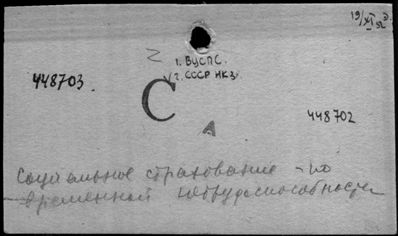 19/XI 52
1. ВУСПС.
√ 2. СССР НКЗ.
448703.
С
А
448702
Социальное страхование - по
временной нетрудоспособности